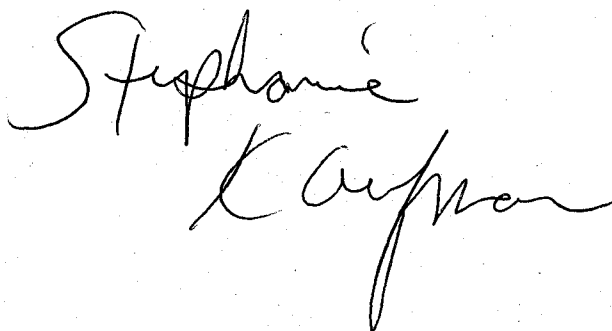 Stephanie
Kaufman